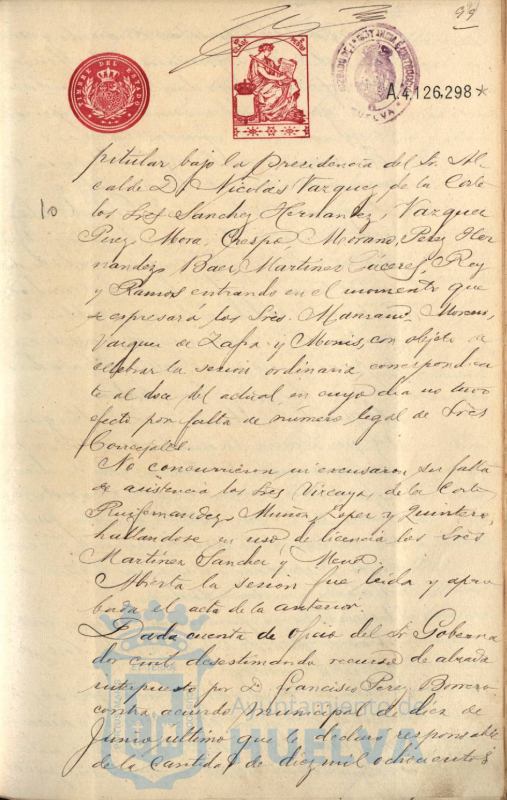 99
TIMBRE DEL ESTADO
HUELVA
A.4,126,298*
pitular bajo la Presidencia del Sr. Al
calde D. Nicolás Vazquez de la Corte
10
los Sres Sanchez Hernandez, Vazquez
Perez, Mora, Crespo, Morano, Perez Her
nandez, Baez, Martinez Cáceres, Rey
y Ramos entrando en el momento que
se expresará los Sres. Manzano, Moreno,
Vazquez de Zafra y Monis, con objeto de
celebrar la sesion ordinaria correspondien
te al doce del actual en cuyo dia no tuvo
efecto por falta de número legal de Sres
Concejales.
No concurrieron ni escusaron su falta
de asistencia los Sres Vizcaya, de la Corte
Ruifernandez, Muñoz, Lopez y Quintero,
hallandose en uso de licencia los Sres
Martinez Sanchez y
Abierta la sesion fue leida y apro
bada el acta de la anterior.
Dada cuenta de oficio del Sr Goberna
dor civil desestimando recurso de alzada
interpuesto por D. Francisco Perez Borrero
contra acuerdo municipal de diez de
Junio último que le declaró responsable
de la cantidad de diez mil ochocientos
Ayuntamiento de
HUELVA